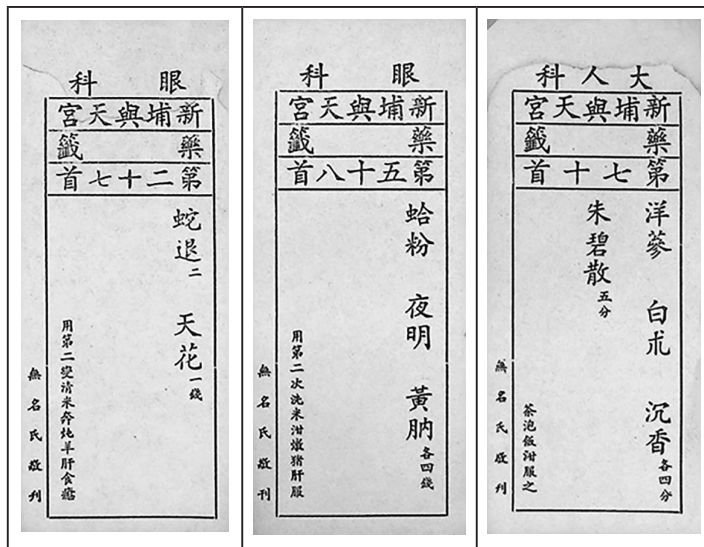 眼科
新埔與天宮
藥籤
第二十七首
蛇退二 天花一錢
用第二變清米奔炖羊肝食癒
無名氏敬刊
眼科
新埔與天宮
藥籤
第五十八首
蛤粉 夜明 黃肭各四錢
用第二次洗米泔燉猪肝服
無名氏敬刊
大人科
新埔與天宮
藥籤
第七十首
洋蔘 白朮 沉香各四分
朱碧散五分
茶泡飯泔服之
無名氏敬刊